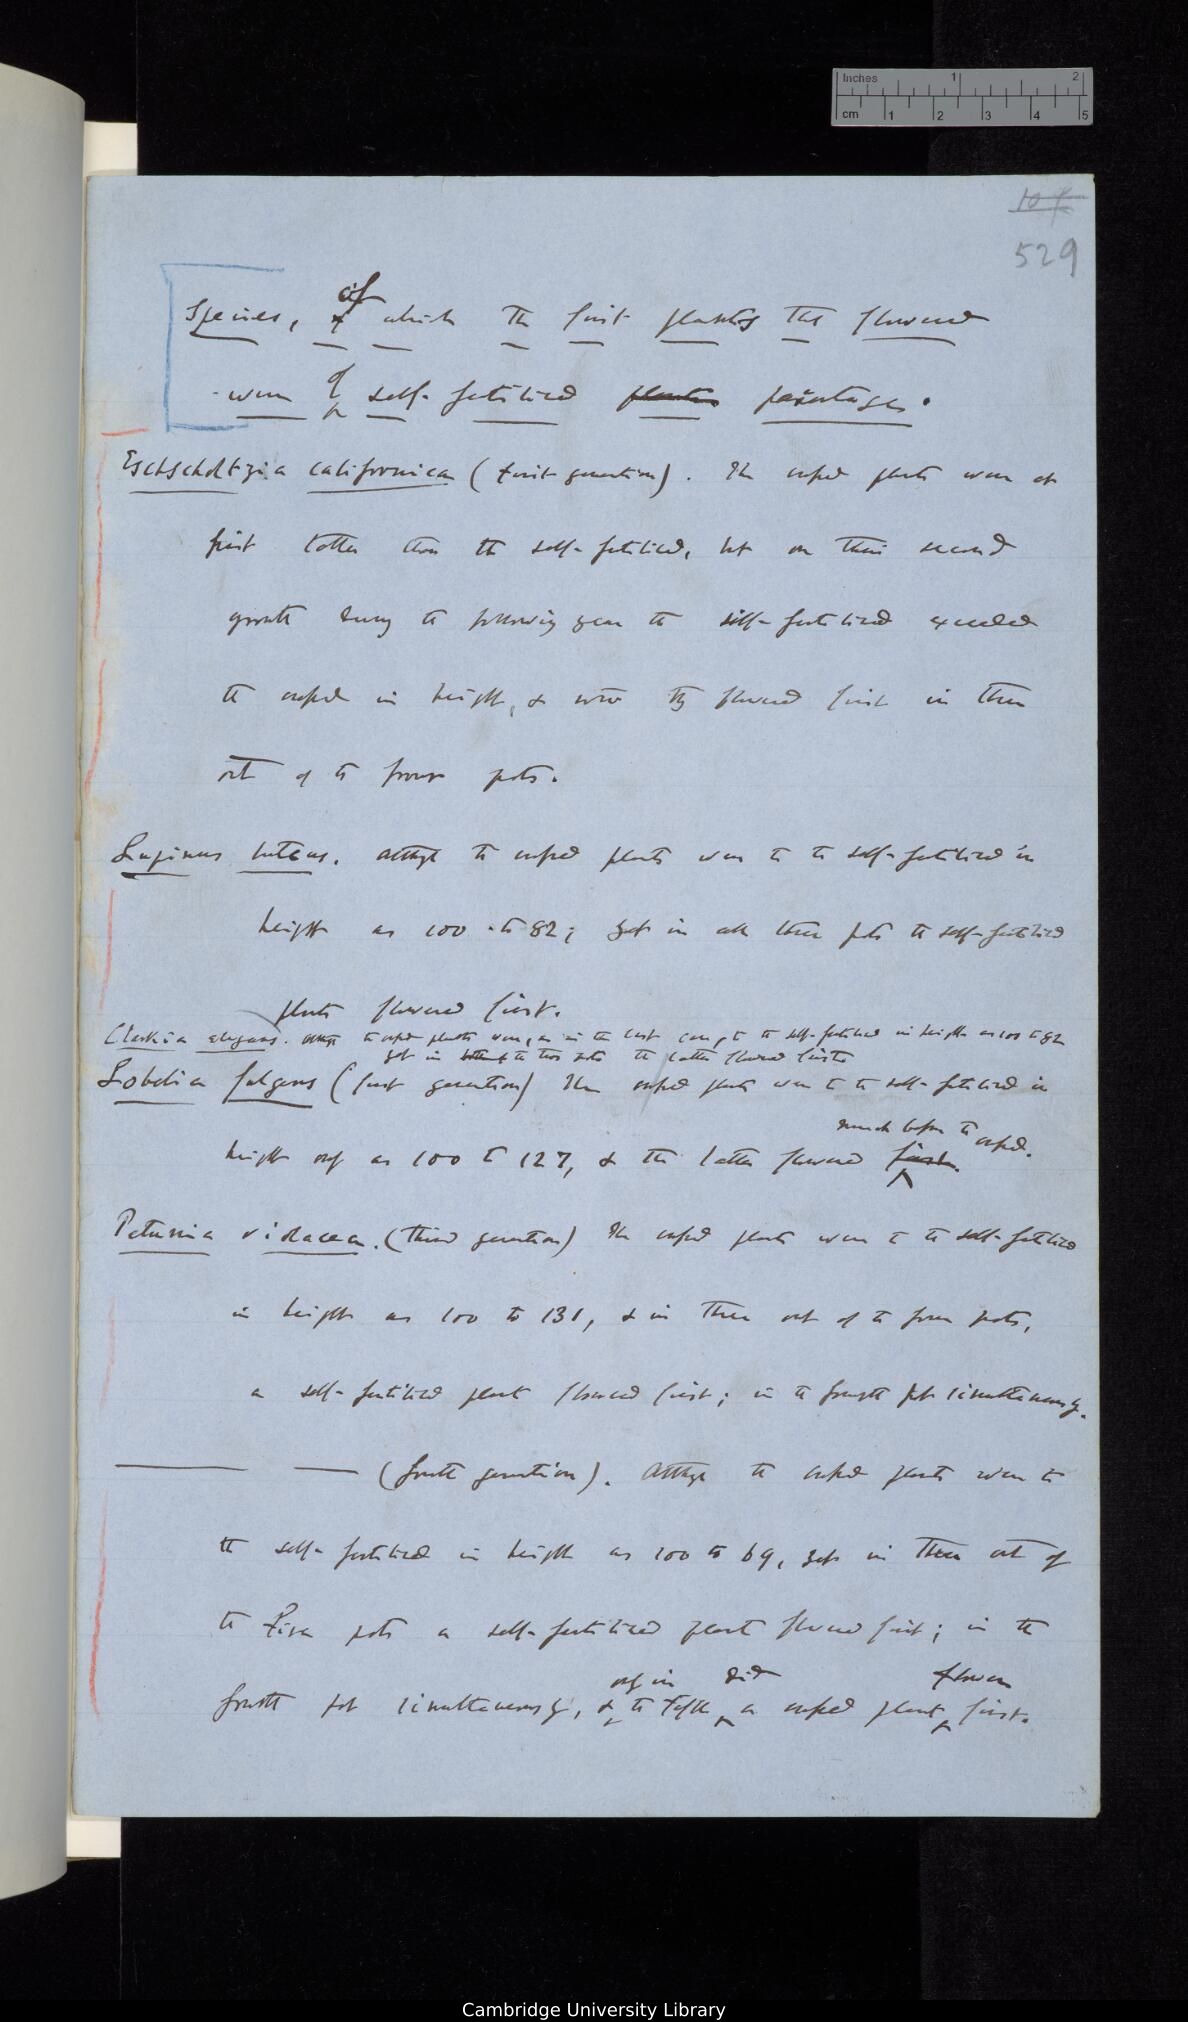 Inches 1 2
cm 1 2 3 4 5
529
Species, of which the first plants that flowered
were of self-fertilised plants parentage.
Eschscholtzia californica (first generation). The crossed plants were at
first taller than the self-fertilised, but on their second
growth during the following year the self-fertilised exceeded
the crossed in height, & now they flowered first in three
out of the four pots.
Lupinus luteus. Although the crossed plants were to the self-fertilised in
height as 100 to 82; yet in all three pots the self-fertilised
plants flowered first.
Clarkia elegans. Although the crossed plants were, as in the last case, to the self-fertilised in height as 100 to 82
yet in the two pots the latter flowered first
Lobelia fulgens (first generation) The crossed plants were to the self-fertilised in
much before the crossed.
height only as 100 to 127, & the latter flowered first.
Petunia violacea. (third generation) The crossed plants were to the self-fertilised
in height as 100 to 131, & in three out of the four pots,
a self-fertilised plant flowered first; in the fourth pot simultaneously.
(fourth generation). Although the crossed plants were to
the self-fertilised in height as 100 to 69, yet in three out of
the five pots a self-fertilised plant flowered first; in the
only in did flower
fourth pot simultaneously, & the fifth a crossed plant first.
Cambridge University Library